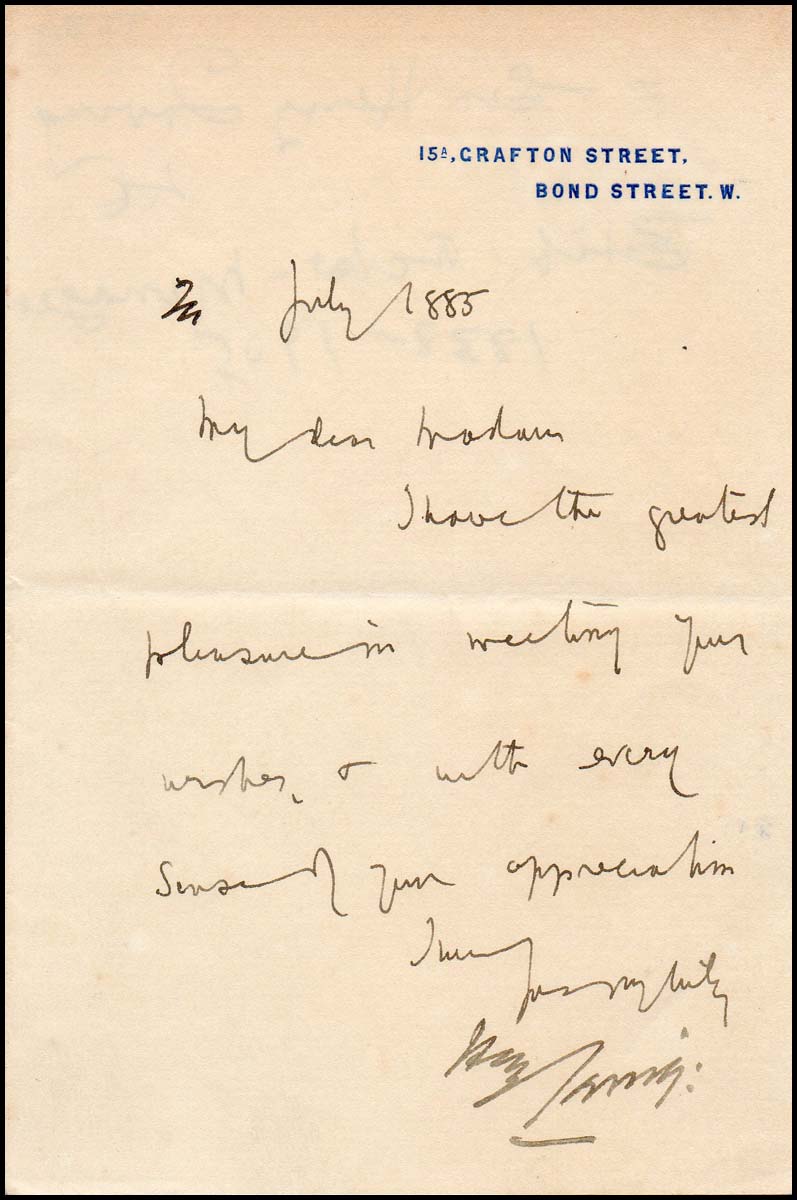 15A, GRAFTON STREET,
BOND STREET. W.
July 1885
My dear Madam
I have the greatest
pleasure in meeting your
wishes, & with every
sense of your appreciation
I am
Yours truly
Hy Irving: